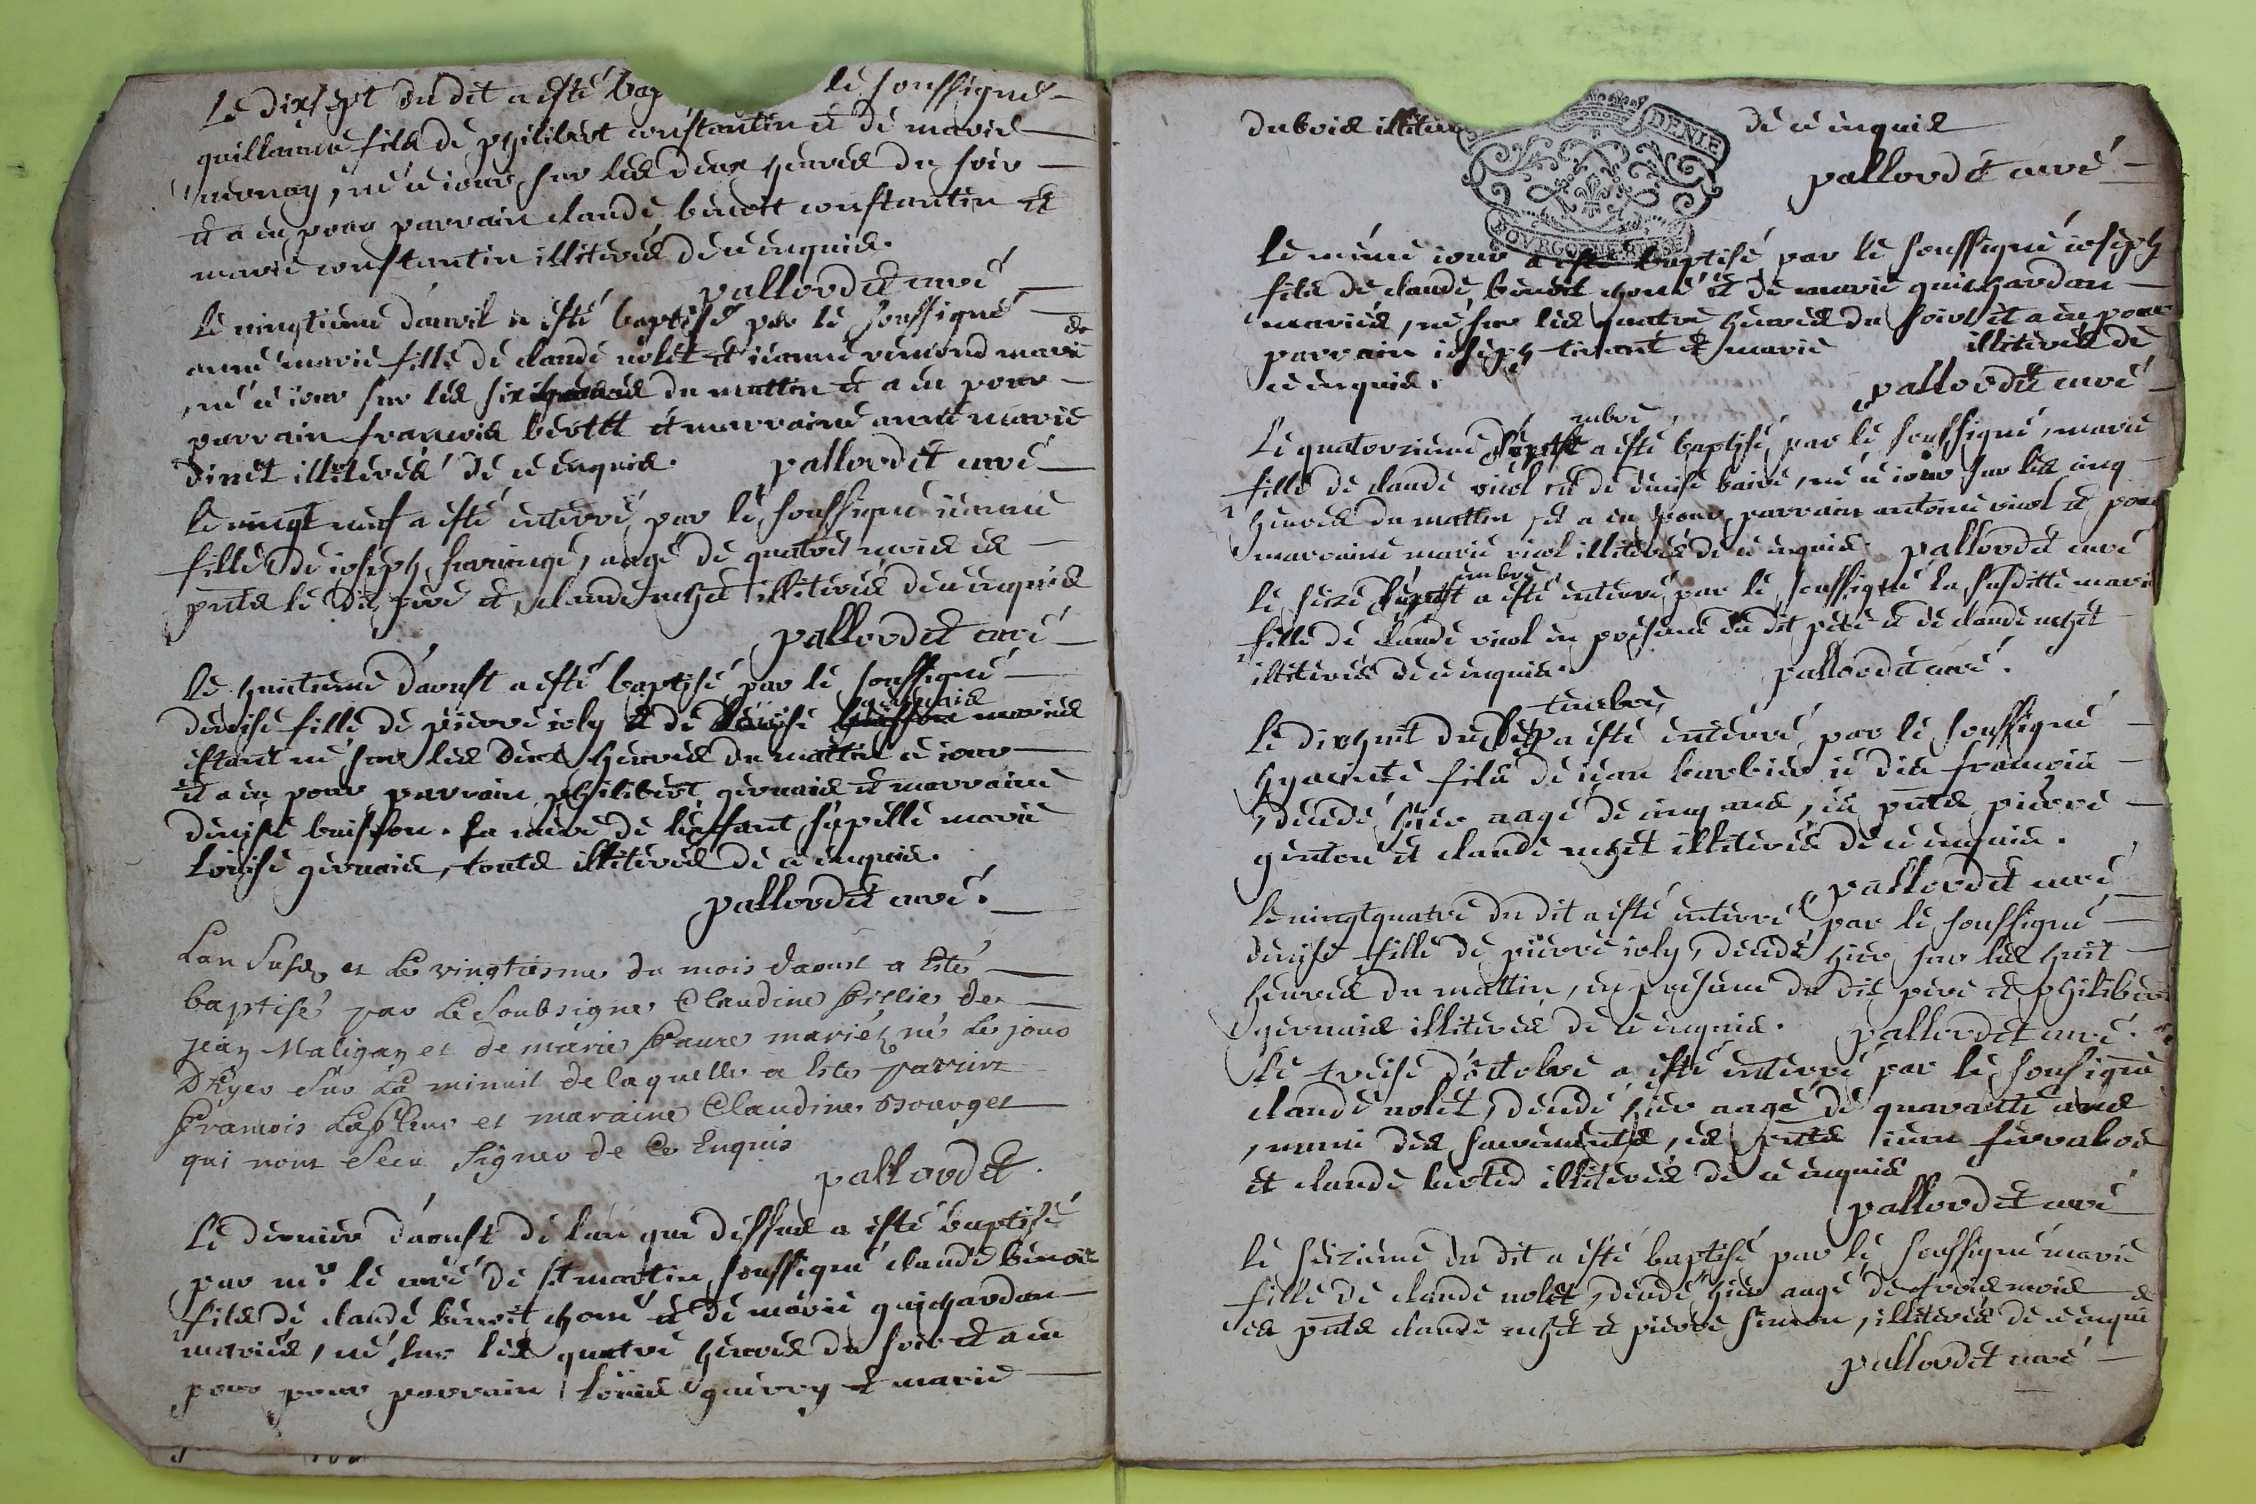 Le dixsept du dit a esté bap le soussigné
guillaume fils de philibert constantin et de marie
, né ce iour sur les deux heures du soir
et a eu pour parrain claude benoit constantin et
marie constantin illiterés de ce enquis.
pallordet curé
Le vingtieme d'auril a esté baptisé par le soussigné
anne marie fille de claude nolet et ieanne remond mariés
, né ce iour sur les six heures du mattin et a eu pour
parrain francois bertet et marraine anne marie
dinet illiterés de ce enquis. pallordet curé
le vingt neuf a esté enterré par le soussigné ieanne
fille de ioseph , aagé de quatre mois es
pnts le dit pere et claude illiterés de ce enquis
pallordet curé
Le huitieme d'aoust a esté baptisé par le soussigné
denise fille de pierre ioly et de louise geruais mariés
estant né sur les deux heures du mattin ce iour
et a eu pour parrain philibert geruais et marraine
denise buisson. La mere de l'enfant s'apelle marie
louise geruais, touts illiterés de ce enquis.
pallordet curé.
Lan Susd et Le vingtiesme du mois daoust a Esté
baptisé par Le Soubsigne Claudine fillie de
jean Maligay et de marie faure mariéz né Le jour
D'hyer Sur La minuit de laquelle a Esté parrin
francois Lafleur et maraine Claudine Bourget
qui nont Sceu Signer de Ce Enquis
pallordet
Le dernier d'aoust de l'an que dessus a esté baptisé
par mr le curé de st martin soussigné claude benoit
fils de claude benoit chone et de marie guichardan
mariés, né sur les quatre heures du soir et a eu
pour pour parrain loüis guerry et marie
dubois illiterés de ce enquis
pallordet curé
DENIE
BOVRGOGNE
Le même iour a esté baptisé par le soussigné ioseph
fils de claude benoit chone et de marie guichardan
mariés, né sur les quatre heures du soir et a eu pour
parrain ioseph et marie illiterés de
ce enquis. pallordet curé
embre
Le quatorzieme sept a esté baptisé par le soussigné, marie
fille de claude viol et de denise baire, né ce iour sur les cinq
heures du mattin, et a eu pour parrain antoine viol et pour
marraine marie viol illiterés de ce enquis. pallordet curé
embre
le seize sept a esté enterré par le soussigné la susditte marie
fille de claude viol en présence du dit pere et de claude
illiterés de ce enquis. pallordet curé.
tembre
Le dixhuit du sep a esté enterré par le soussigné
hyacinte fils de iean barbier ie dis francois
, décédé hier aagé de cinq ans, es pnts pierre
genton et claude illiterés de ce enquis.
pallordet curé
Le vingtquatre du dit a esté enterré par le soussigné
denise fille de pierre ioly, décédé hier sur les huit
heures du mattin, en présence du dit pere et philibert
geruais illiterés de ce enquis. pallordet curé.
Le treise d'octobre a esté enterré par le sousigné
claude nolet, décédé hier aagé de quarante ans
, muni des sacrements, es pnts iean
et claude illiterés de ce enquis
pallordet curé
le seizieme du dit a esté baptisé par le soussigné marie
fille de claude nolet, décédé hier aagé de trois mois
es pnts claude et pierre simon, illiterés de ce enquis
pallordet curé